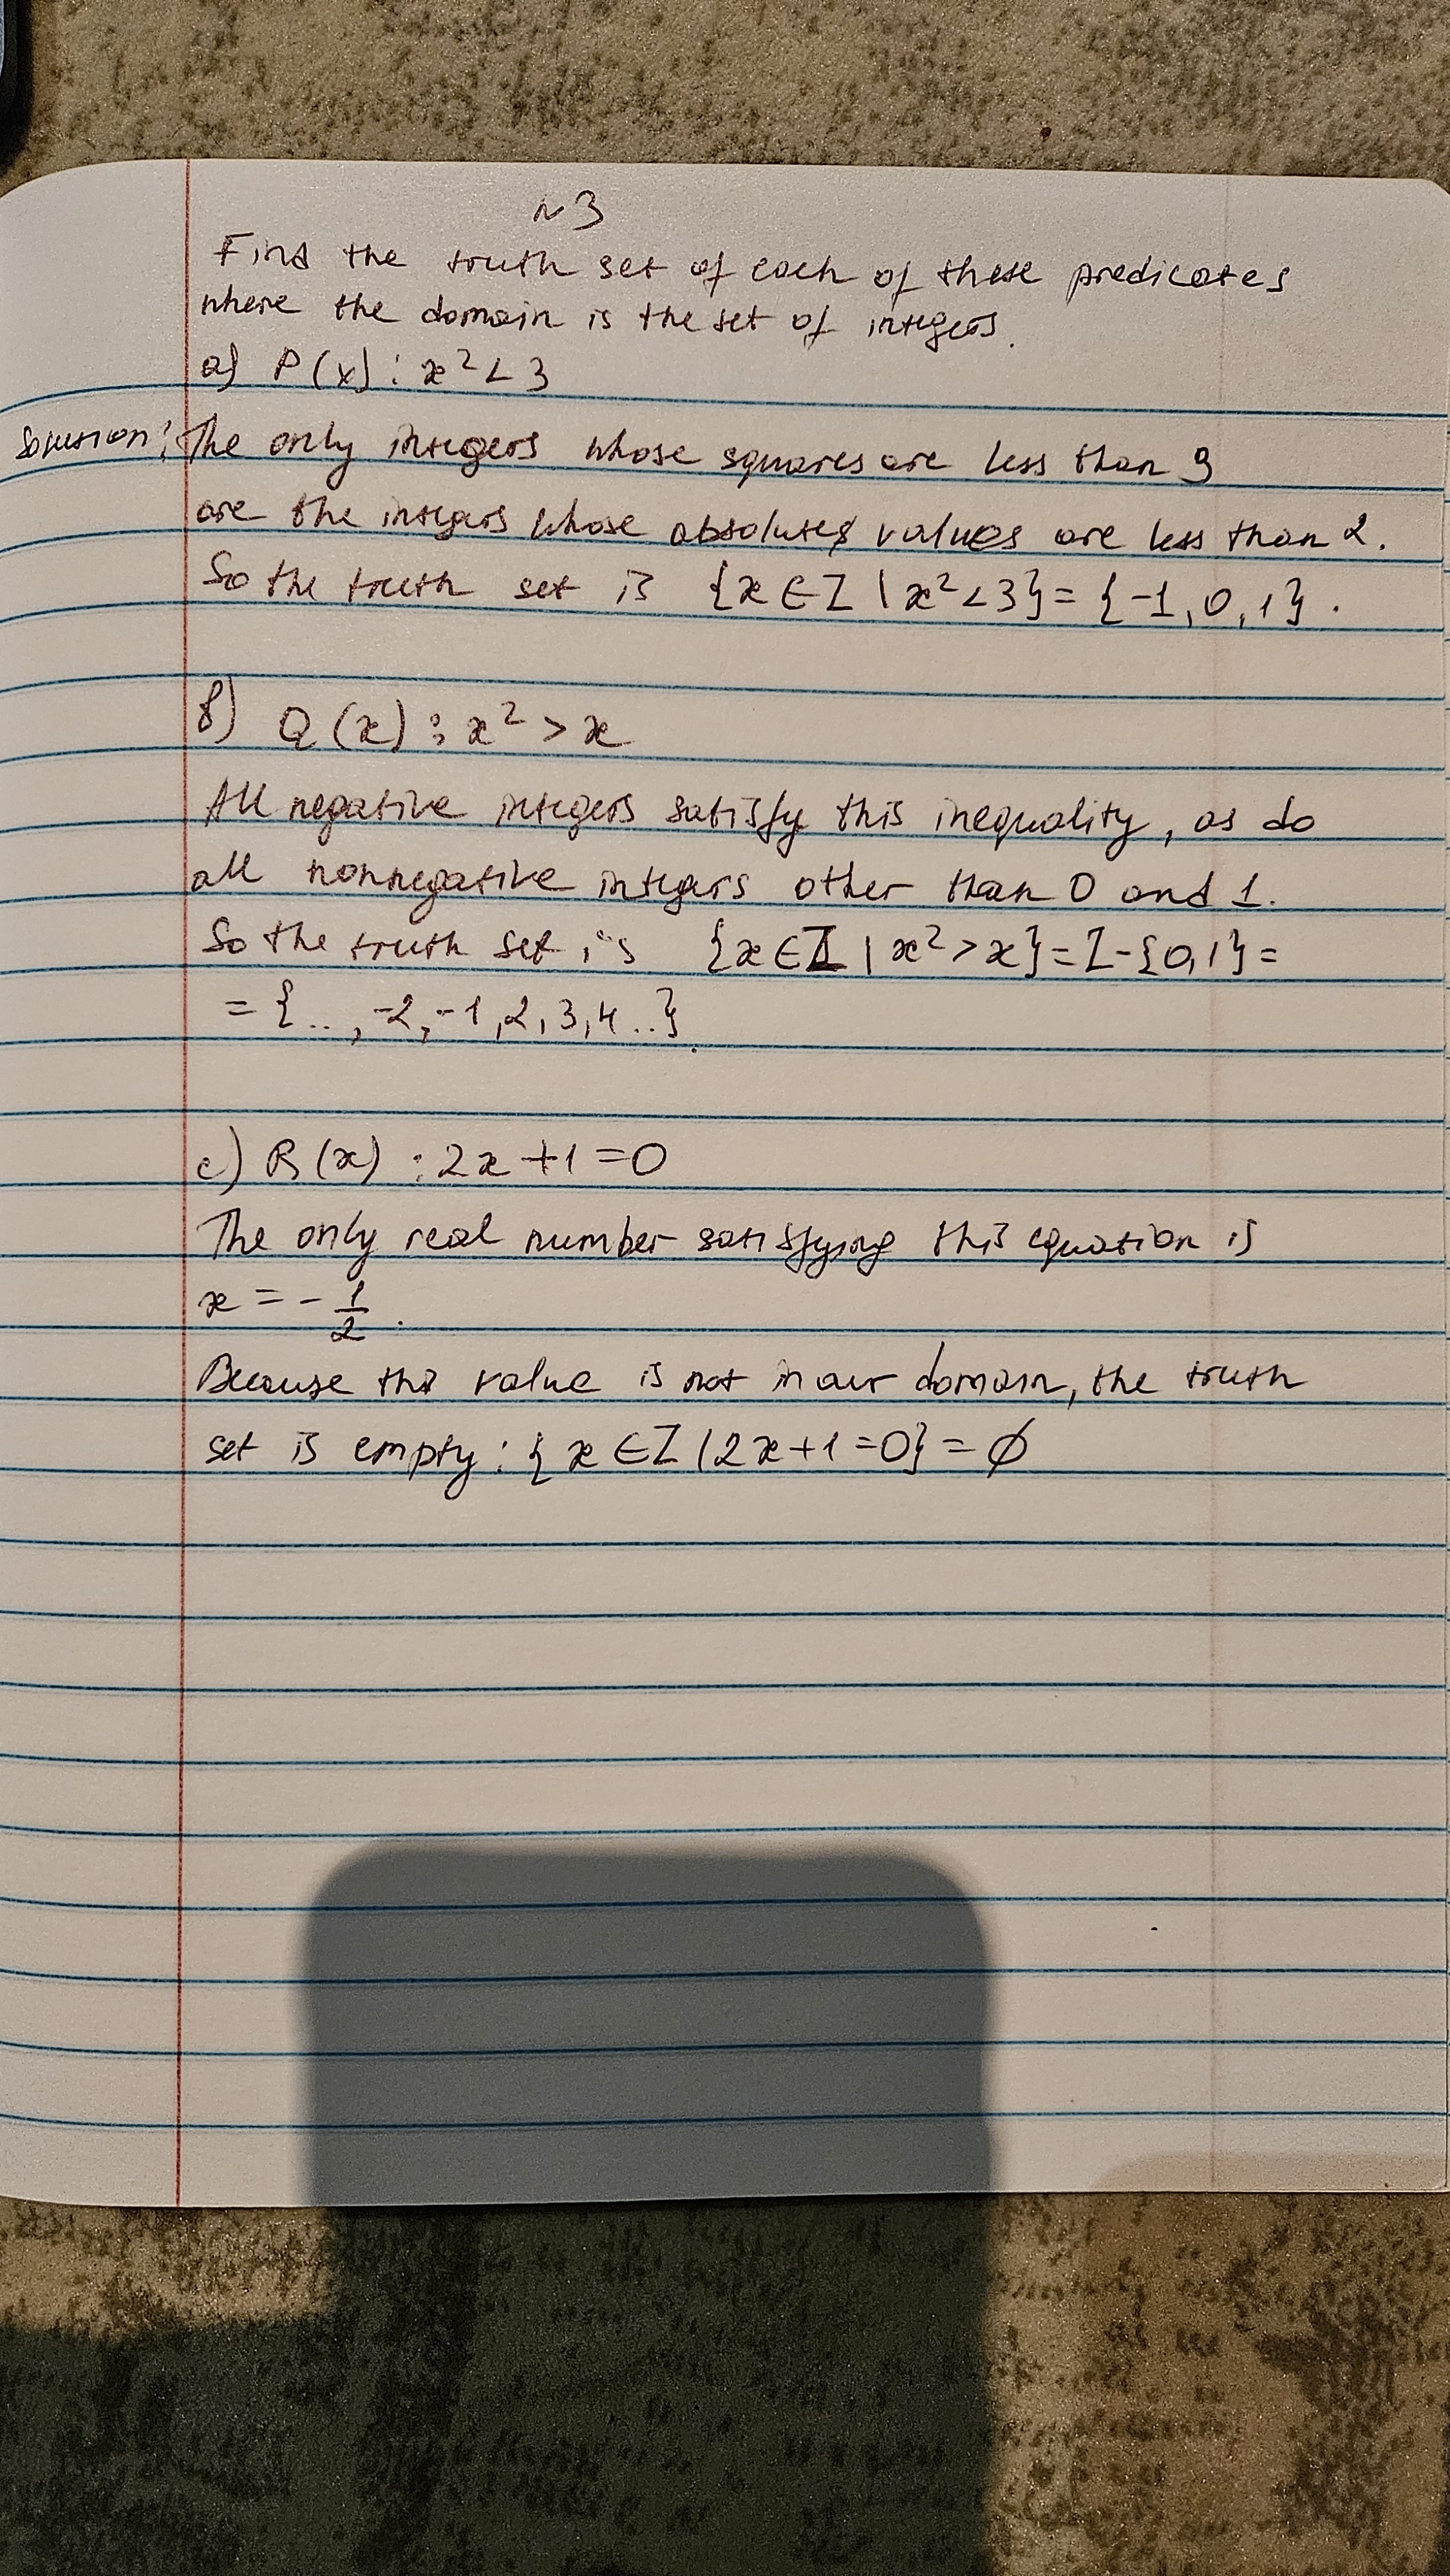 N3
Find the truth set of each of these predicates
where the domain is the set of integers.
a) P(x): x² < 3
Solution: The only integers whose squares are less than 3
are the integers whose absolutes values are less than 2.
So the truth set is {x ∈ Z | x² < 3} = {-1, 0, 1}.
b) Q(x): x² > x
All negative integers satisfy this inequality, as do
all nonnegative integers other than 0 and 1.
So the truth set is {x ∈ Z | x² > x} = Z - {0,1} =
= {.., -2, -1, 2, 3, 4 ..}.
c) R(x) : 2x + 1 = 0
The only real number satisfying this equation is
x = - 1/2.
Because this value is not in our domain, the truth
set is empty: {x ∈ Z | 2x + 1 = 0} = ∅